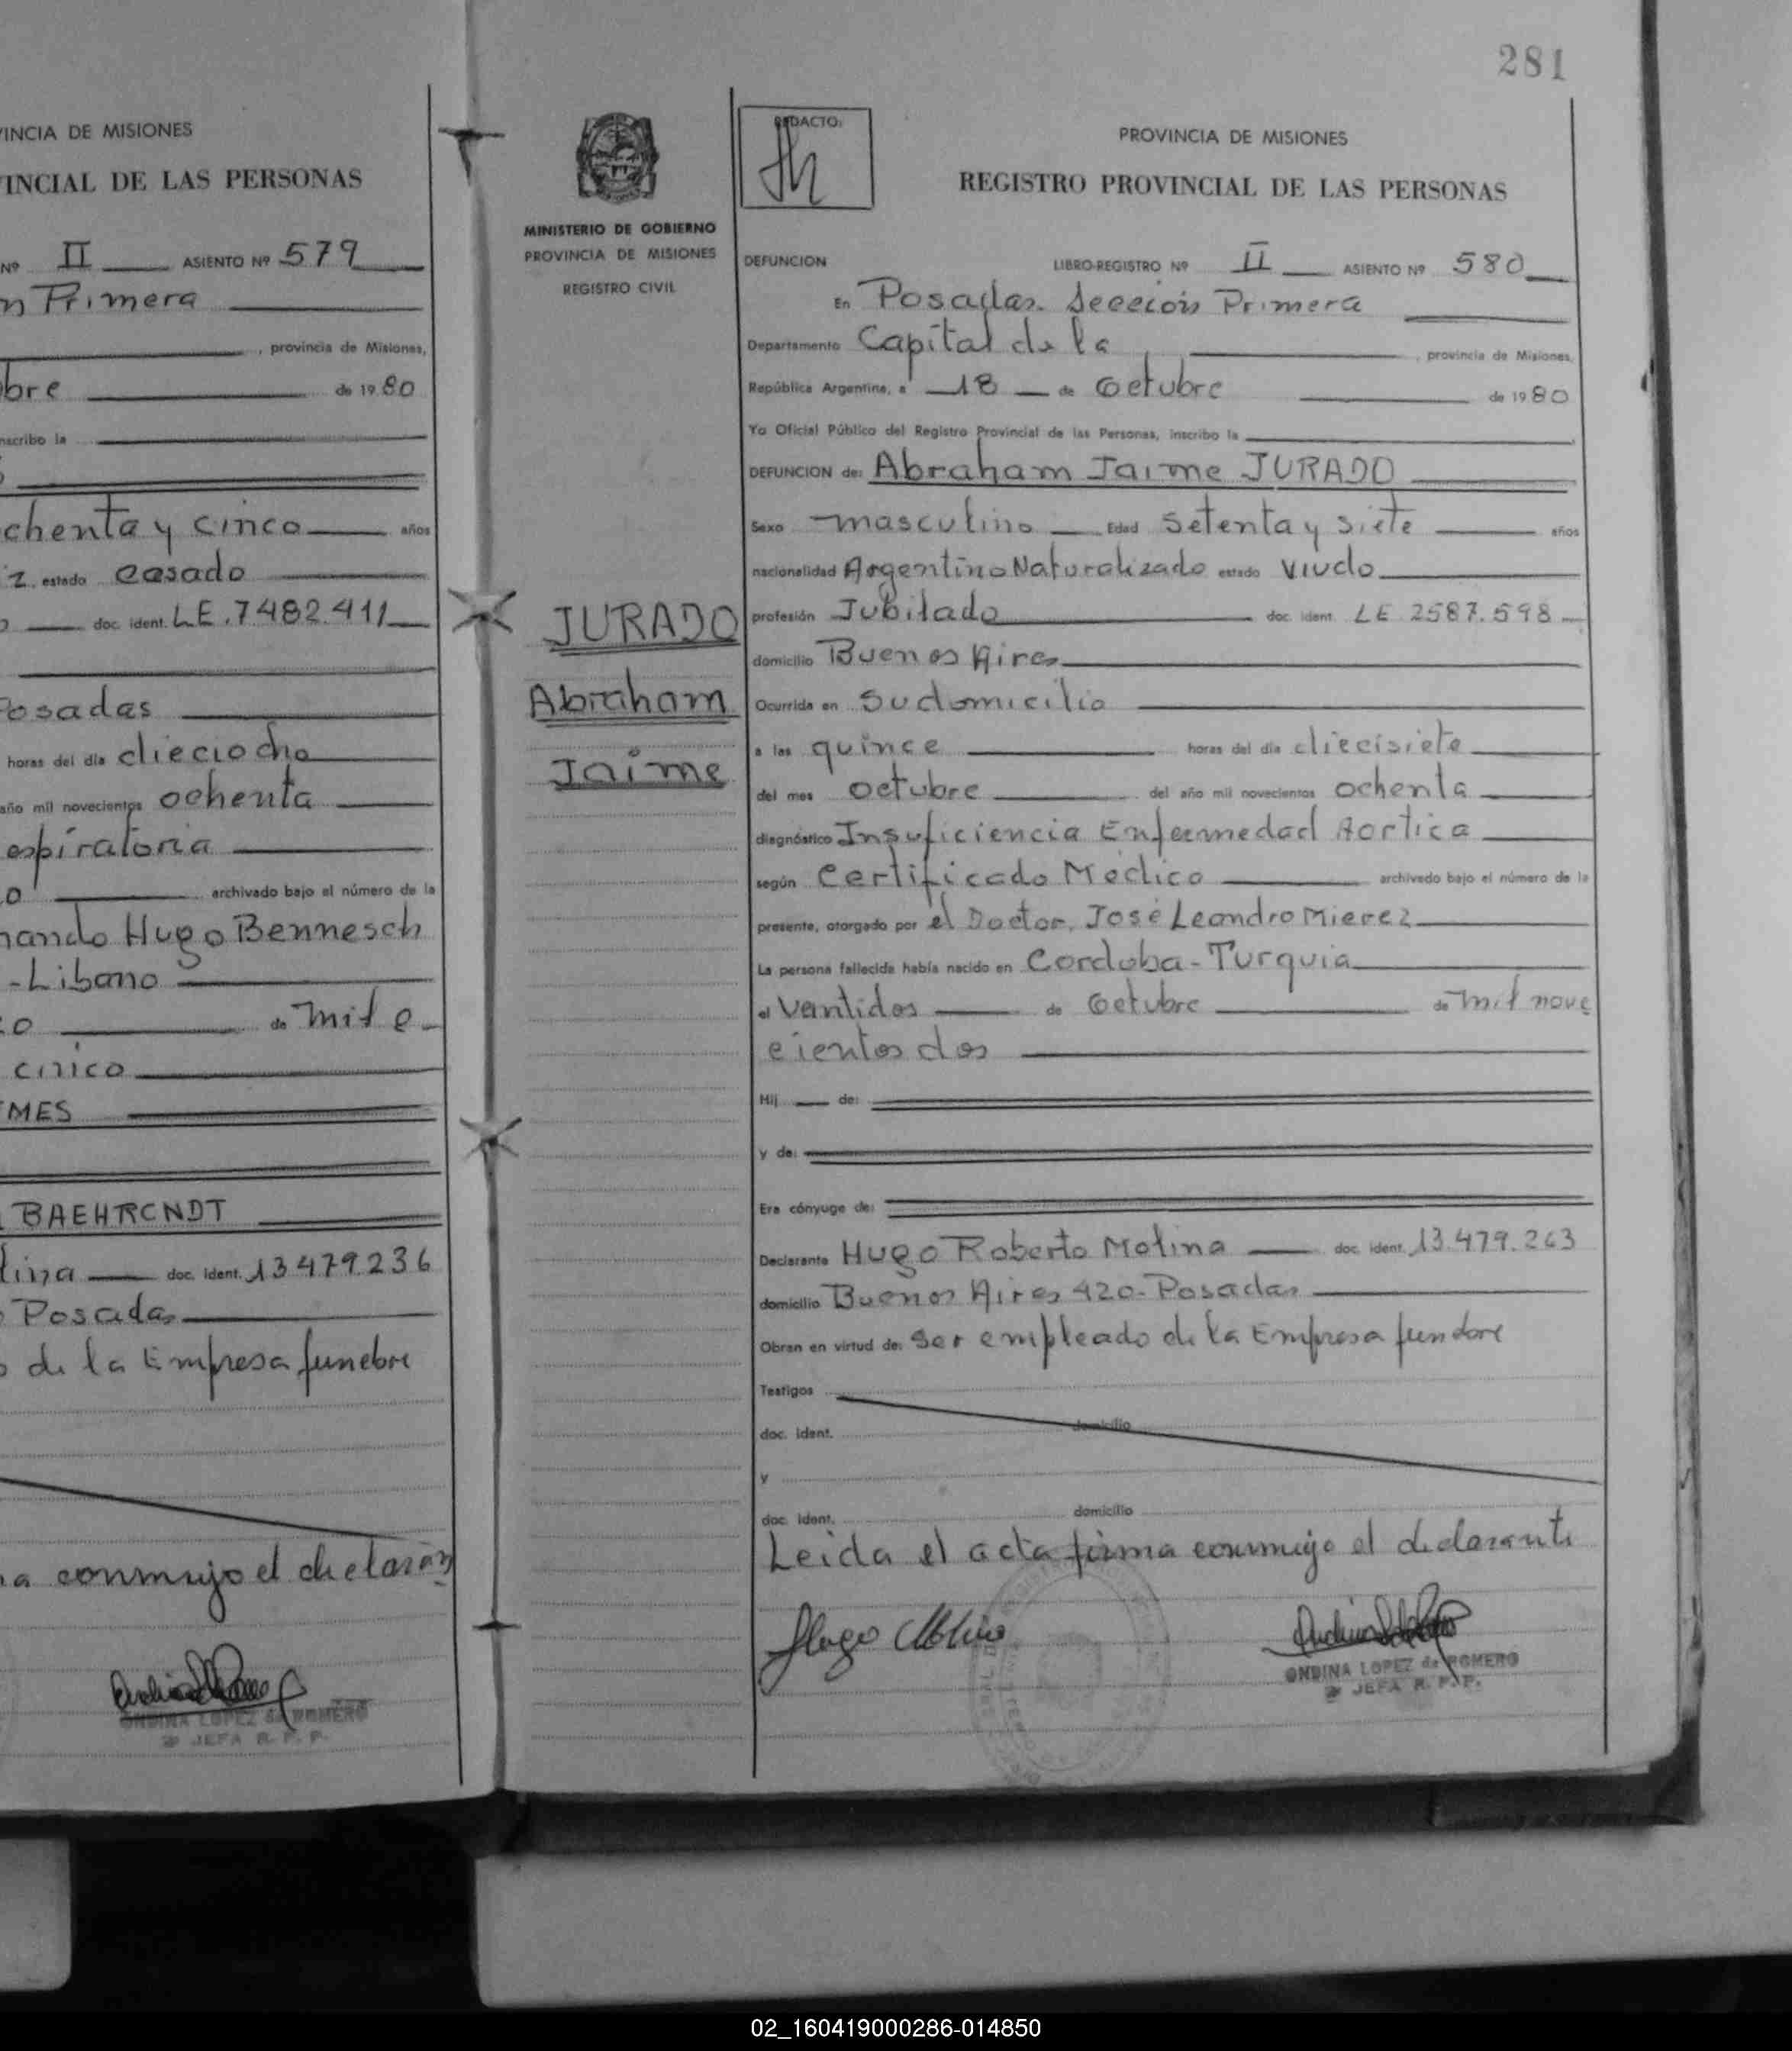 VINCIA DE MISIONES
VINCIAL DE LAS PERSONAS
Nº II ASIENTO Nº 579
n Primera
, provincia de Misiones,
bre de 1980
nscribo la
chenta y cinco años
z estado casado
doc. ident. LE.7482.411
Posadas
horas del día dieciocho
año mil novecientos ochenta
espiratoria
o archivado bajo el número de la
nando Hugo Bennesch
- Libano
de mil o
cinco
MES
BAEHRCNDT
lina doc. ident. 13479236
Posadas
o de la Empresa funebre
a conmigo el declaran
ONDINA LOPEZ de ROMERO
JEFA R. P. P.
281
MINISTERIO DE GOBIERNO
PROVINCIA DE MISIONES
REGISTRO CIVIL
JURADO
Abraham
Jaime
REDACTO:
PROVINCIA DE MISIONES
REGISTRO PROVINCIAL DE LAS PERSONAS
DEFUNCION LIBRO-REGISTRO Nº II ASIENTO Nº 580
En Posadas. Sección Primera
Departamento Capital de la , provincia de Misiones,
República Argentina, a 18 de Octubre de 1980
Yo Oficial Público del Registro Provincial de las Personas, inscribo la
DEFUNCION de: Abraham Jaime JURADO
Sexo masculino Edad Setenta y siete años
nacionalidad Argentino Naturalizado estado Viudo
profesión Jubilado doc. ident. LE 2587.598
domicilio Buenos Aires
Ocurrida en Su domicilio
a las quince horas del día diecisiete
del mes octubre del año mil novecientos ochenta
diagnóstico Insuficiencia Enfermedad Aortica
según Certificado Medico archivado bajo el número de la
presente, otorgado por el Doctor, José Leandro Mierez
La persona fallecida había nacido en Cordoba - Turquia
el Ventidos de Octubre de mil nove
cientos dos
Hij de:
y de:
Era cónyuge de:
Declarante Hugo Roberto Molina doc. ident. 13.479.263
domicilio Buenos Aires 420 - Posadas
Obran en virtud de: Ser empleado de la Empresa funebre
Testigos
doc. ident. domicilio
y
doc. ident. domicilio
Leida el acta firma conmigo el declarante
Hugo Molina
ONDINA LOPEZ de ROMERO
JEFA R. P. P.
02_160419000286-014850